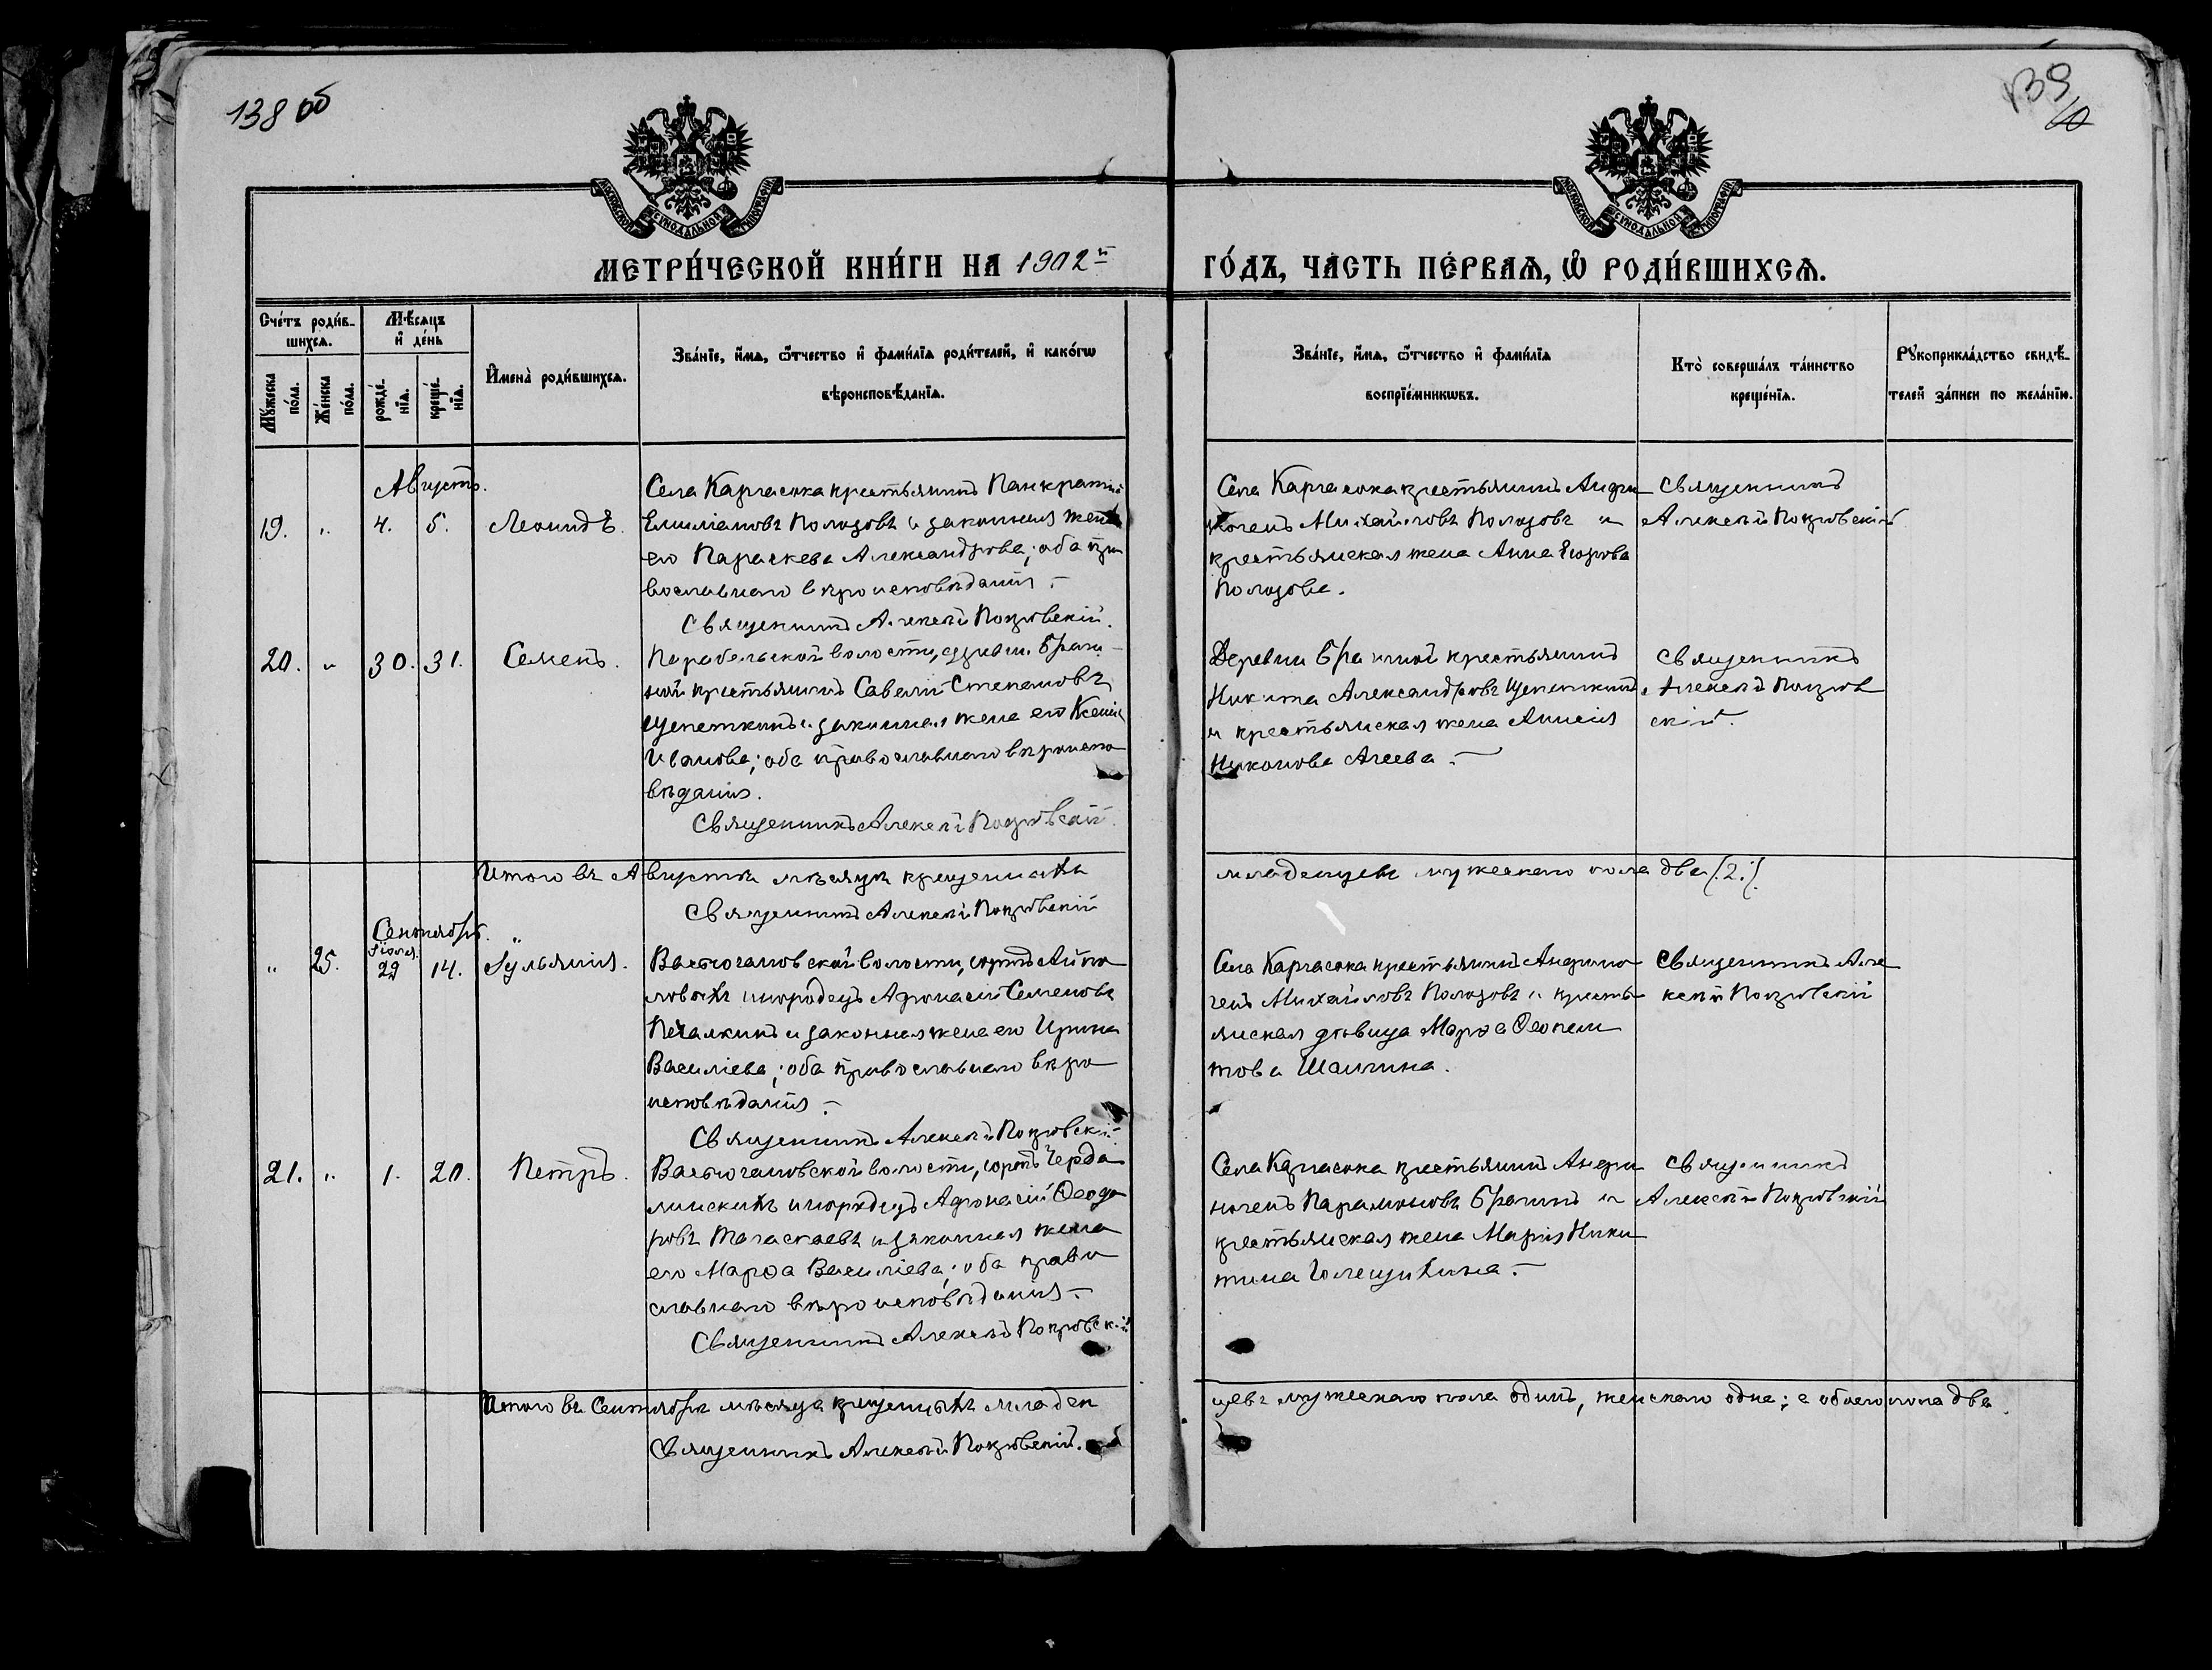 138 об
139
МОСКОВСКОЙ СУНОДАЛЬНОЙ ТИПОГРАФІИ
МОСКОВСКОЙ СУНОДАЛЬНОЙ ТИПОГРАФІИ
МЕТРИ́ЧЕСКОЙ КНИ́ГИ НА 1902й
ГО́ДЪ, ЧА́СТЬ ПЕ́РВАѦ, Ѡ҆ РОДИ́ВШИХСѦ.
Сче́тъ роди́в-
шихсѧ.
Мѣ́сѧцъ
и҆ де́нь
Мꙋ́жеска
по́ла.
Же́нска
по́ла.
рожде́-
нїѧ.
креще́-
нїѧ.
И҆мена̀ роди́вшихсѧ.
Зва́нїе, и҆́мѧ, ѻ҆́тчество и҆ фами́лїѧ роди́телей, и҆ како́гѡ
вѣроисповѣ́данїѧ.
Зва́нїе, и҆́мѧ, ѻ҆́тчество и҆ фами́лїѧ
воспрїе́мникѡвъ.
Кто̀ соверша́лъ та́инство
креще́нїѧ.
Рꙋкоприкла́дство свидѣ́-
телей за́писи по жела́нїю.
Августъ.
19. „ 4. 5. Леонидъ.
Села Каргасока крестьянинъ Панкратій
Емиліановъ Полозовъ и законная жена
его Параскева Александрова; оба пра
вославнаго вѣроисповѣданія.–
Священникъ Алексѣй Покровскій.
Села Каргасока крестьянинъ Андро
Михайловъ Полозовъ и
крестьянская жена Анна Егорова
Полозова.
Священникъ
Алексѣй Покровскій
20. „ 30. 31. Семенъ.
Парабельской волости, деревни Браги-
ной крестьянинъ Савелій Степановъ
Щепеткинъ и законная жена его Ксенія
Иванова; оба православнаго вѣроиспо
вѣданія.
Священникъ Алексѣй Покровскій.
Деревни Брагиной крестьянинъ
Никита Александровъ Щепеткинъ
и крестьянская жена Анисія
Никонова Агеева.–
Священникъ
Алексѣй Покров
скій.
Итого въ Августѣ мѣсяцѣ крещенныхъ
младенцевъ мужескаго пола два (.2.).
Священникъ Алексѣй Покровскій
Сентябрь.
„ 25. Іюля 29 14. Іульянія.
Васюгановской волости, юртъ Айпо
ловыхъ инородецъ Афонасій Семеновъ
Печалкинъ и законная жена его Ирина
Василіева; оба православнаго вѣро
исповѣданія.–
Священникъ Алексѣй Покровскій
Села Каргасока крестьянинъ Андрони
Михайловъ Полозовъ и кресть
янская дѣвица Марѳа Ѳеопем
това Шашина.
Священникъ Але
ксѣй Покровскій
21. „ 1. 20. Петръ.
Васюгановской волости, юртъ Черда
линскихъ инородецъ Афонасій Ѳеодо
ровъ и законная жена
его Марѳа Василіева; оба право
славнаго вѣроисповѣданія.–
Священникъ Алексѣй Покровскій
Села Каргасока крестьянинъ Андро
Парамоновъ Брагинъ и
крестьянская жена Марія Ники
тина Голещихина.–
Священникъ
Алексѣй Покровскій
Итого въ Сентябрѣ мѣсяца крещенныхъ младен
цевъ мужескаго пола одинъ, женскаго одна; а обоего пола два.
Священникъ Алексѣй Покровскій.